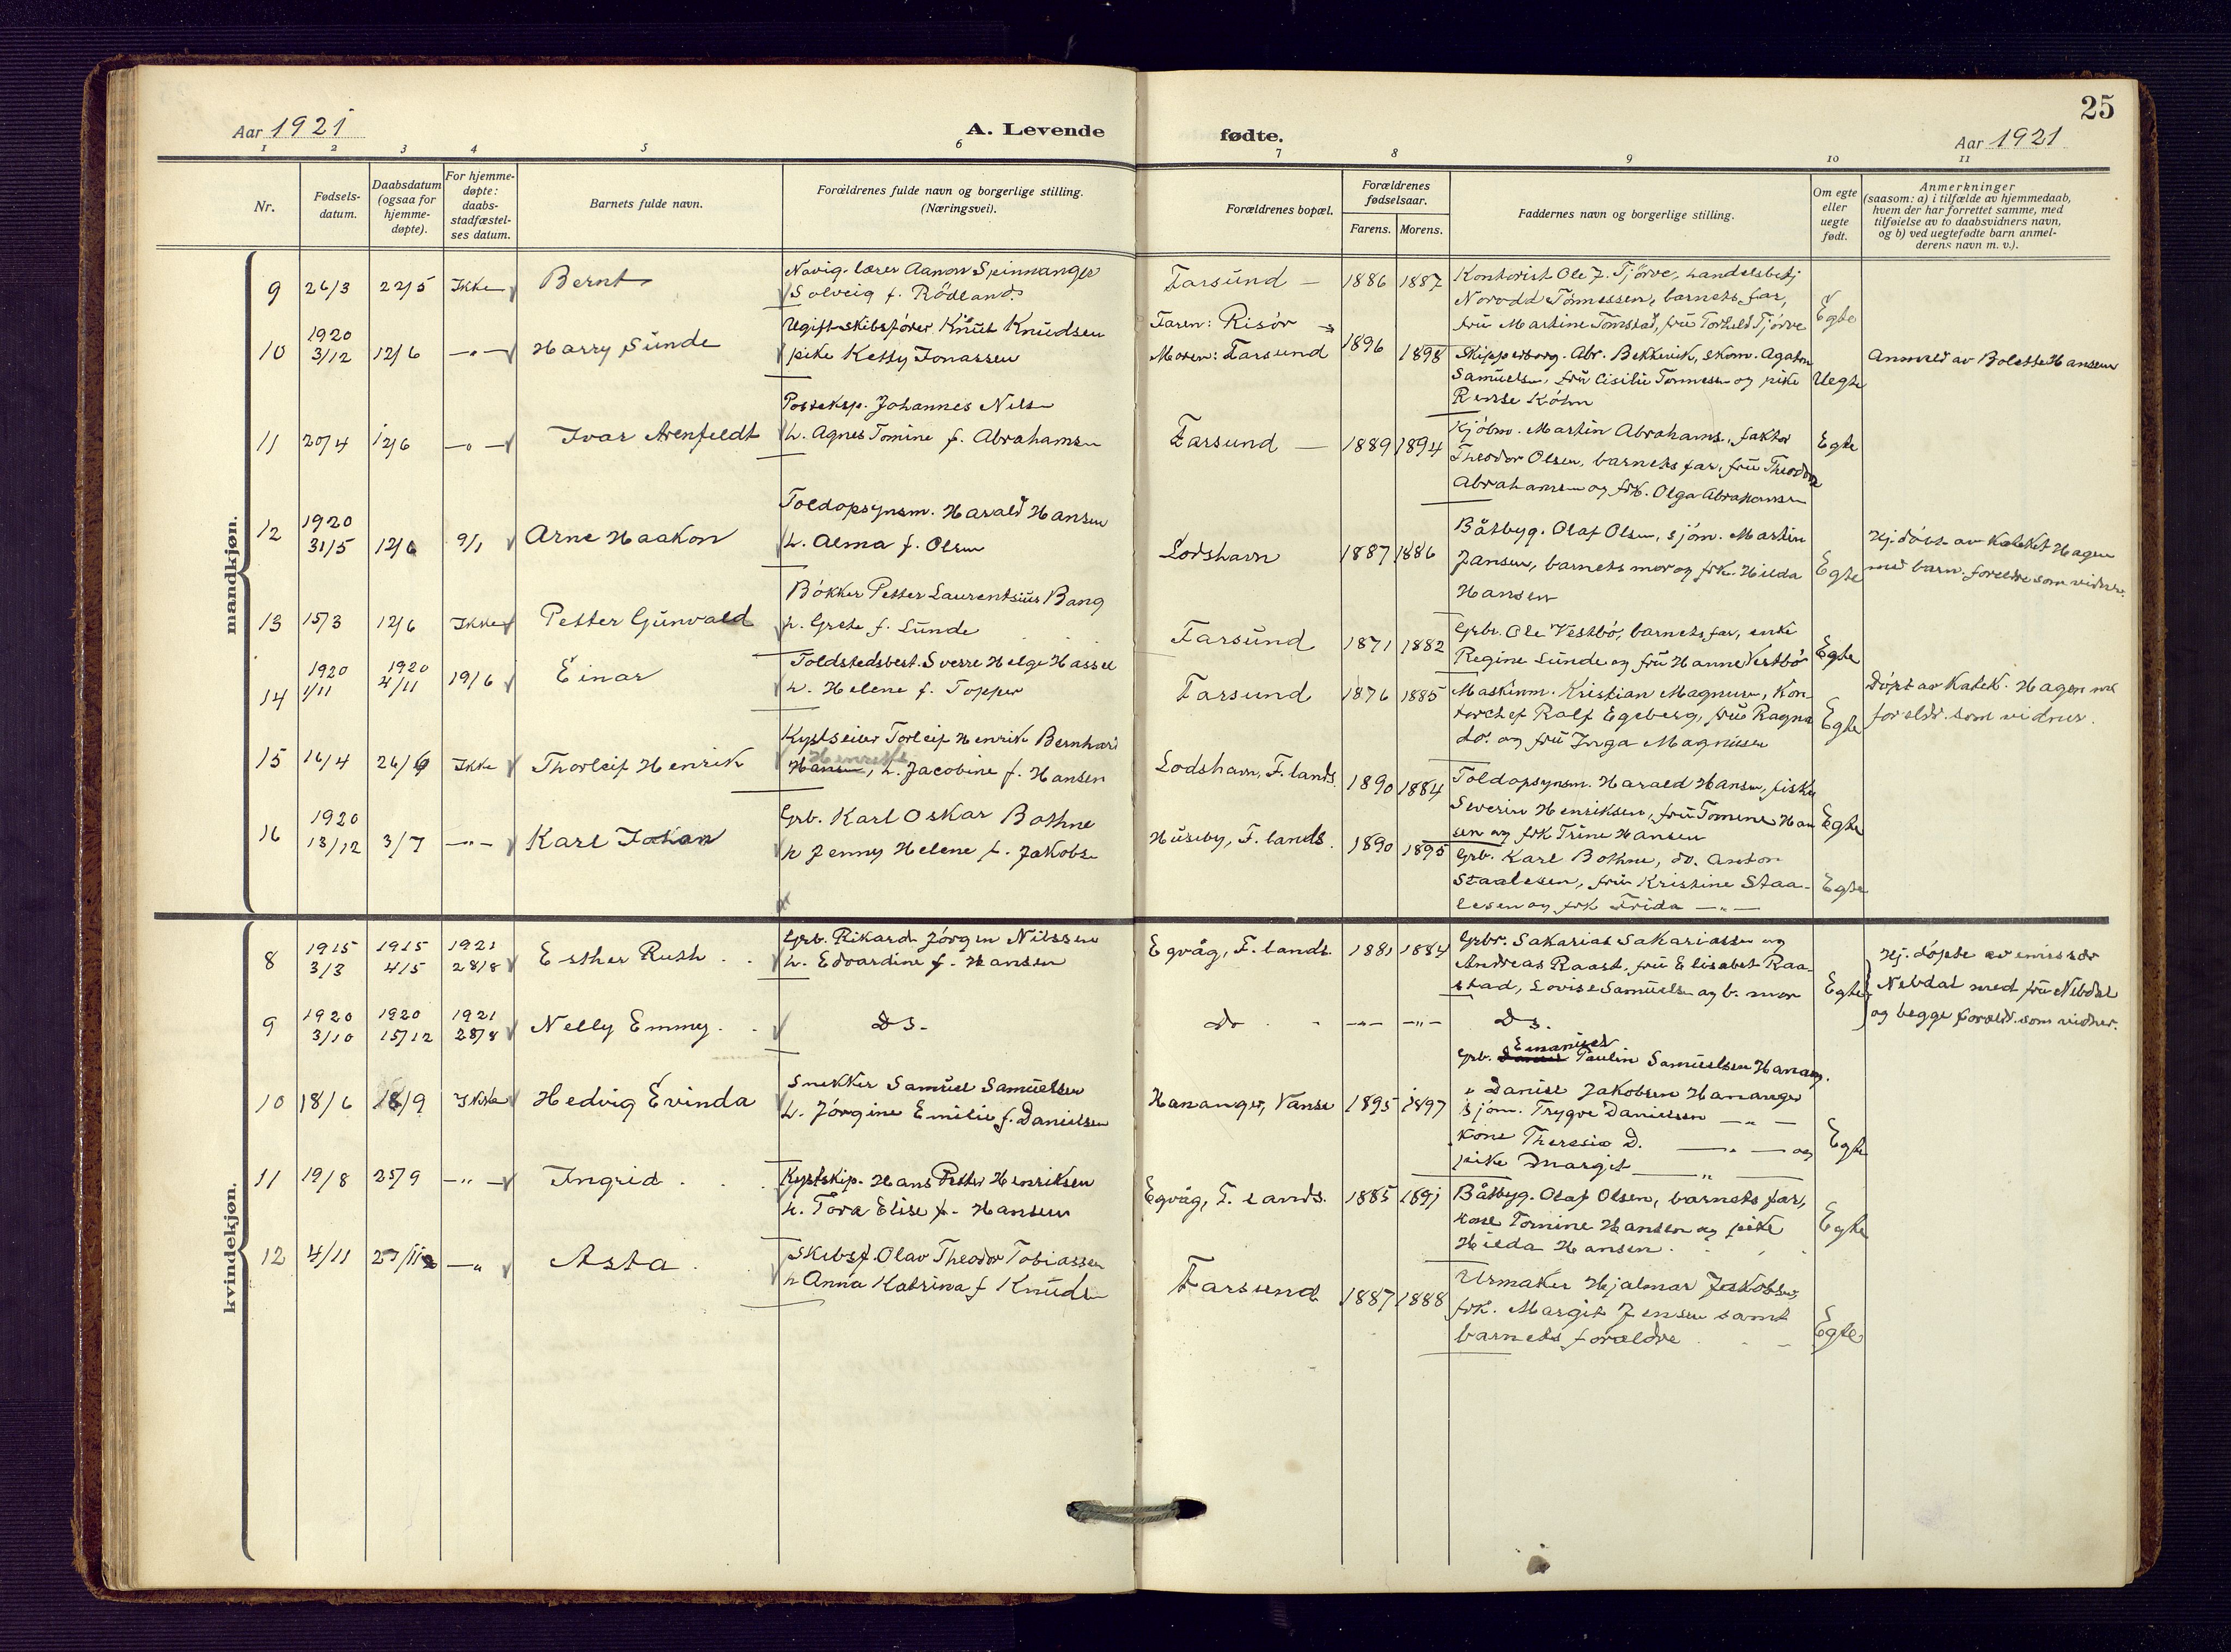 25
Aar 1921
A. Levende fødte.
Aar 1921
1 2 3 4 5 6 7 8 9 10 11
Nr.
Fødsels-
datum.
Daabsdatum
(ogsaa for
hjemme-
døpte).
For hjemme-
døpte:
daabs-
stadfæstel-
ses datum.
Barnets fulde navn.
Forældrenes fulde navn og borgerlige stilling.
(Næringsvei).
Forældrenes bopæl.
Forældrenes
fødselsaar.
Farens. Morens.
Faddernes navn og borgerlige stilling.
Om egte
eller
uegte
født.
Anmerkninger
(saasom: a) i tilfælde av hjemmedaab,
hvem der har forrettet samme, med
tilføielse av to daabsvidners navn,
og b) ved uegtefødte barn anmel-
derens navn m. v.).
mandkjøn.
9 26/3 22/5 Ikke Bernt
Navig. lærer Aanon Spinnanger
Solveig f. Rödland
Farsund — 1886 1887
Kontorist Ole J. Tjörve, handelsbetj
Norodd Tönnessen, barnets far,
frü Martine Tömstad, frü Torhild Tjörve
Egte
10 1920
3/12 12/6 —"— Harry Sünde
Ugift skibsförer Knüt Knüdsen
pike Ketty Jonassen
Faren: Risör
Moren: Farsund 1896 1898
Skipperborg. Abr. Bekkevik, skom. Agaton
Samüelsen, frü Cisilie Tönnessen og pike
Rense Köhn
Uegte
Anmeld av Bolette Hansen
11 20/4 12/6 —"— Ivar Arenfeldt
Posteksp. Johannes Nilsen
h. Agnes Tomine f. Abrahamsen
Farsund — 1889 1894
Kjöbm. Martin Abrahams., faktor
Theodor Olsen, barnets far, frü Theodora
Abrahamsen og frk. Olga Abrahamsen
Egte
12 1920
31/5 12/6 9/1 Arne Haakon
Toldopsynsm. Harald Hansen
h. Alma f. Olsen
Lodshavn 1887 1886
Båtbyg. Olaf Olsen, sjöm. Martin
Jansen, barnets mor og frk. Hilda
Hansen
Egte
Hj. döbt av Kateket Hagen
med barn. foreldre som vidner.
13 15/3 12/6 Ikke Petter Günvald
Bökker Petter Laurentsius Bang
h. Grete f. Lünde
Farsünd 1871 1882
Grbr. Ole Vestbö, barnets far, enke
Regine Lünde og frü Hanne Vestbö
Egte
14 1920
1/11 1920
4/11 19/6 Einar
Toldstedsbest. Sverre Helge Hassel
h. Helene f. Topper
Farsund 1876 1885
Maskinm. Kristian Magnusn, Kon-
torchef Ralf Egeberg, frü Ragna
do. og frü Inga Magnüsen
Egte
Döpt av Katek. Hagen med
foreldr. som vidner.
15 16/4 26/6 Ikke Thorleif Henrik
Kystseiler Torleif Henrik Bernhard
Henriks
Hansen, h. Jacobine f. Hansen
Lodshavn, F. lands. 1890 1884
Toldopsynsm. Harald Hansen, fisker
Severin Henriksen, frü Tomine Han
sen og frk Trine Hansen
Egte
16 1920
13/12 3/7 —"— Karl Johan
Grb. Karl Oskar Bothne
h Jenny Helene f. Jakobsen
Hüseby, F. lands. 1890 1895
Grb. Karl Bothne, do. Anton
Staalesen, frü Kristine Staa-
lesen og frk Frida —"—
Egte
kvindekjøn.
8 1915
3/3 1915
4/5 1921
28/8 Esther Ruth
Grb. Rikard Jörgen Nilssen
h. Edvardine f. Hanssen
Egvåg, F. lands. 1881 1884
Grbr. Sakarias Sakariassen og
Andreas Raast., frü Elisabet Raa-
stad, Lovise Samüelsen og b. mor
Egte
Hj. döpte av emissær
Nebdal med frü Nebdal
og begge forældr. som vidner.
9 1920
3/10 1920
15/12 1921
28/8 Nelly Emmy
Ds. Do —"— —"— Ds.
10 18/6 18/9 Ikke Hedvig Evinda
Snekker Samüel Samüelsen
h. Jörgine Emilie f. Danielsen
Hananger, Vanse 1895 1897
Emanüel
Grb. Daniel Paulin Samüelsen Hanang.
" Daniel Jakobsen Hananger
sjöm. Trygve Danielsen —"—
kone Theresia D. —"— og
pike Margit —"—
Egte
11 19/8 25/9 —"— Ingrid
Kystskip. Hans Petter Henriksen
h. Tora Elise f. Hansen
Egvåg, F. lands. 1885 1891
Båtbyg. Olaf Olsen, barnets far,
kone Tomine Hansen og pike
Hilda Hansen.
Egte
12 4/11 27/11 —" Asta
Skibsf. Olav Theodor Tobiassen
h Anna Katrina f Knüdsen
Farsund 1887 1888
Urmaker Hjalmar Jakobsen,
frk. Margit Jensen samt
barnets forældre
Egte